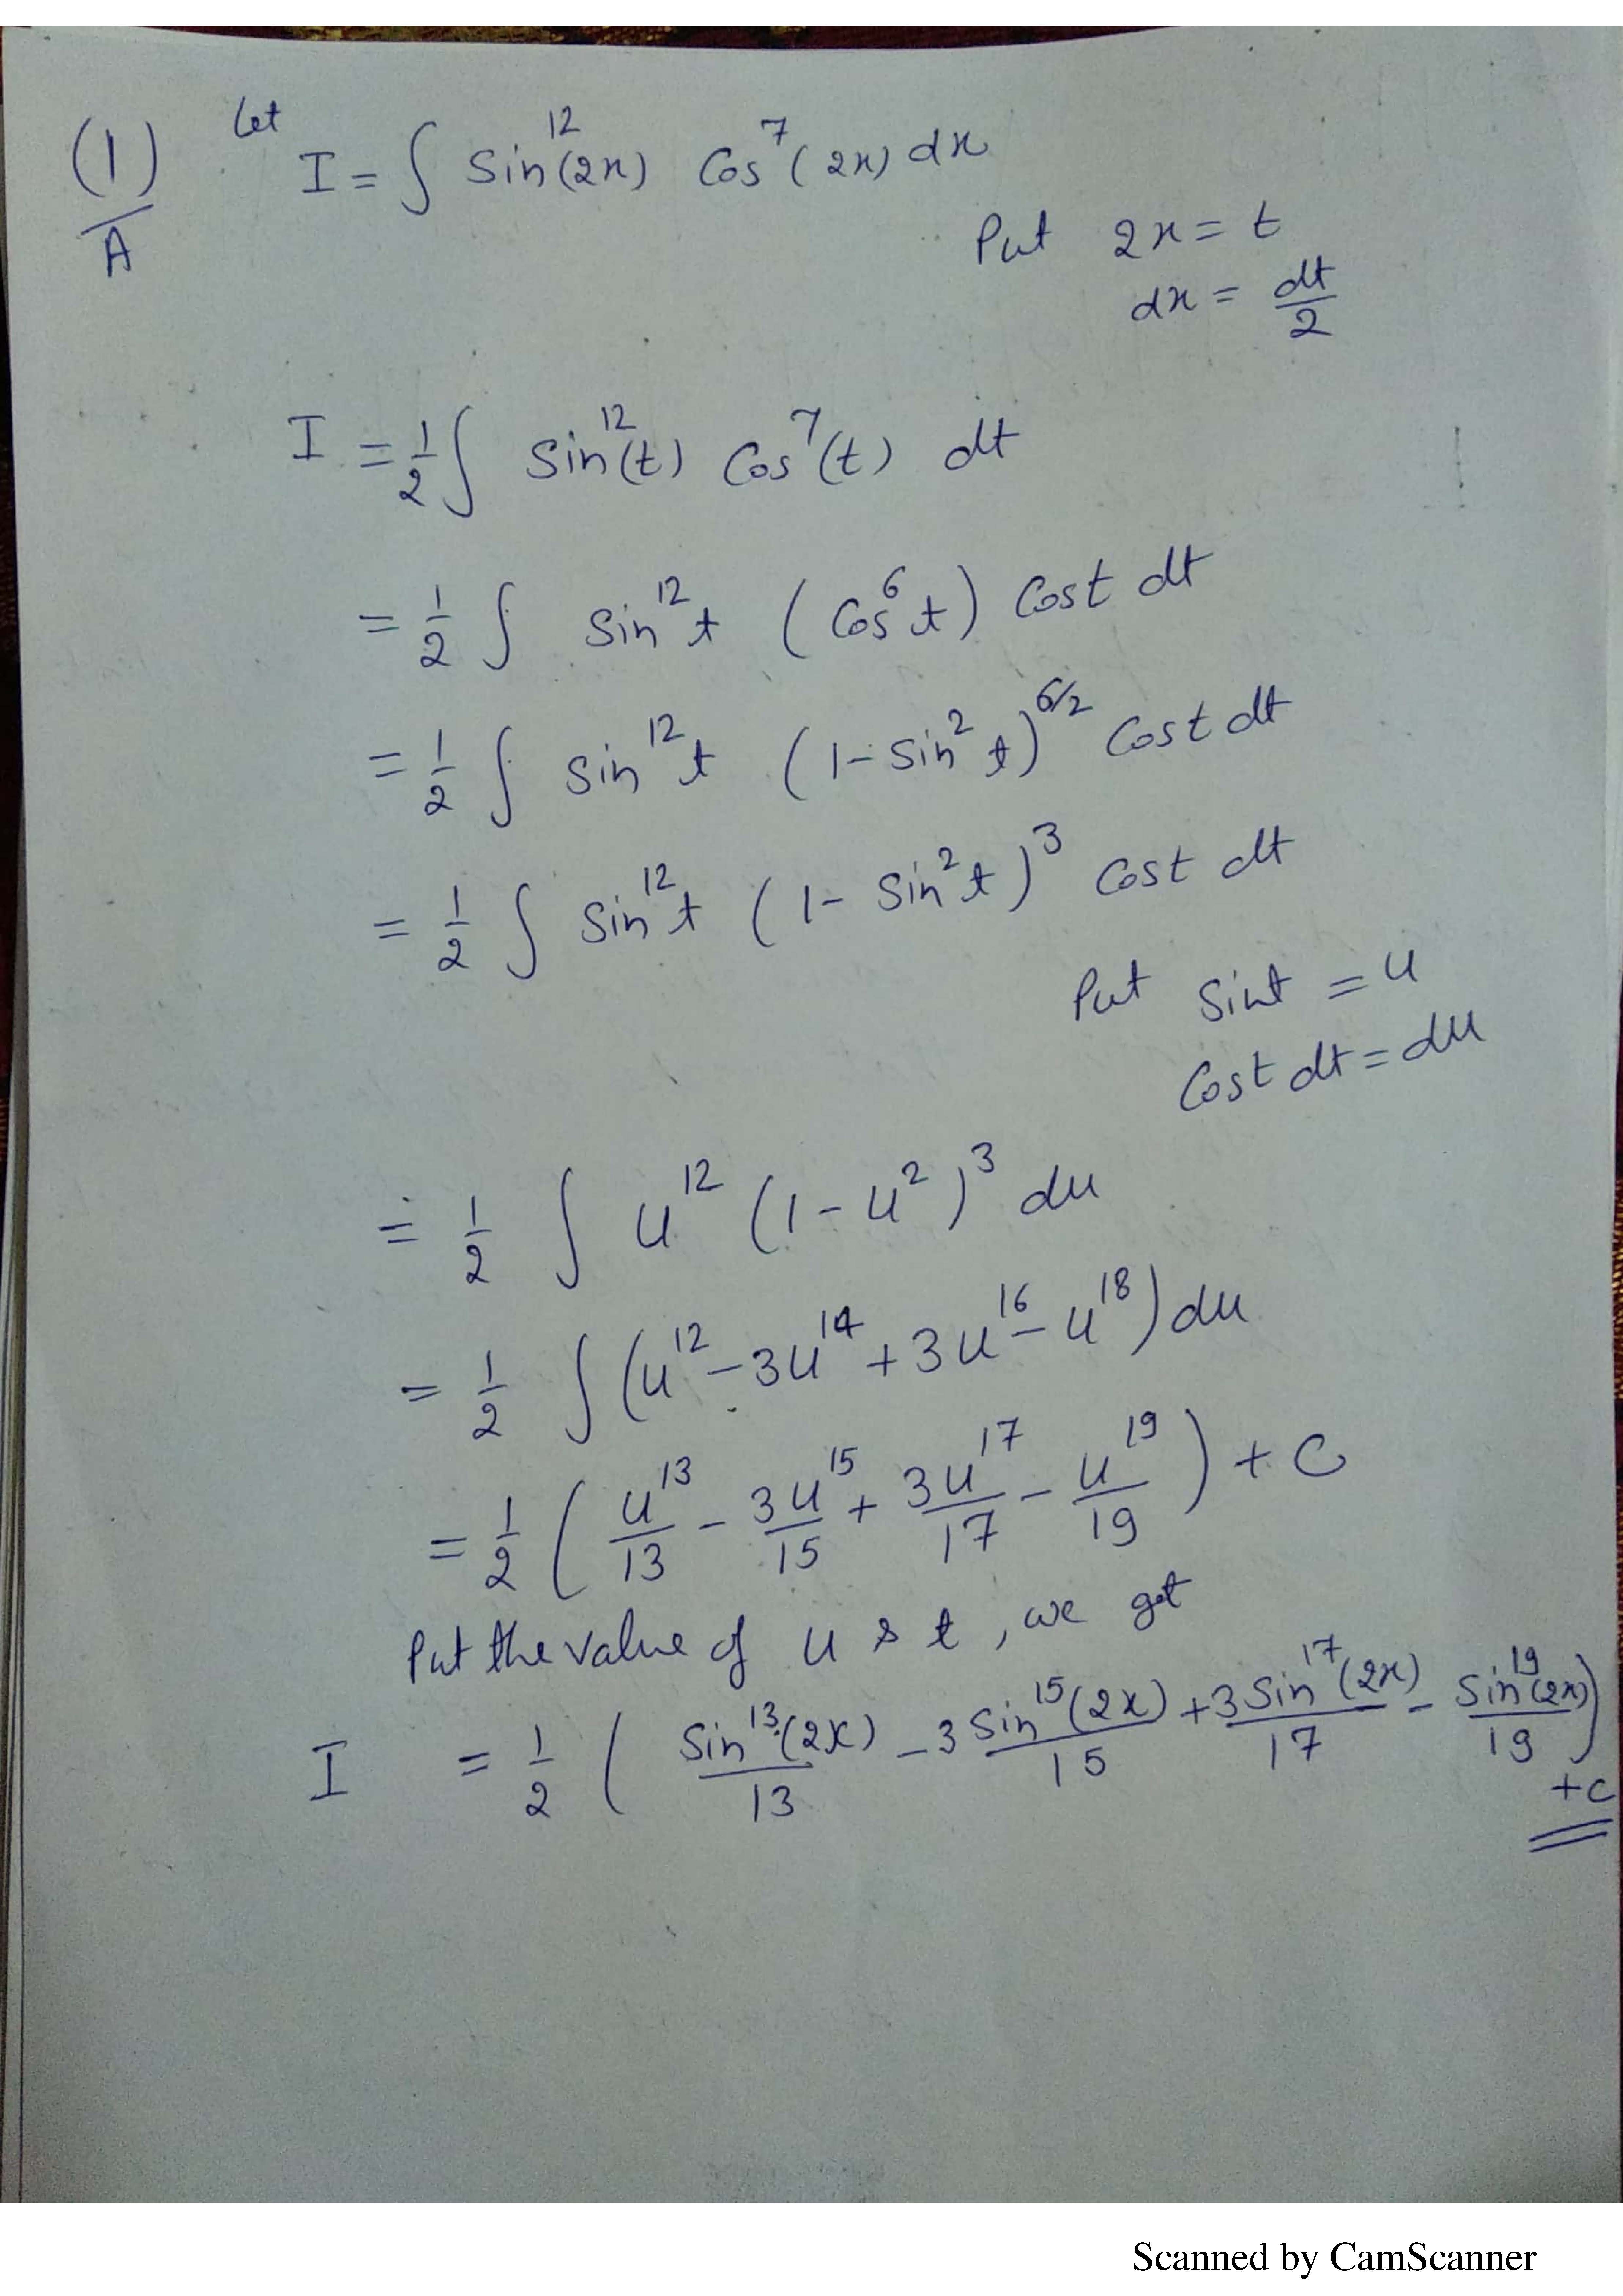 (1) Let
A
I = ∫ Sin¹²(2x) Cos⁷(2x) dx
Put 2x = t
dx = dt/2
I = 1/2 ∫ Sin¹²(t) Cos⁷(t) dt
= 1/2 ∫ Sin¹²t (Cos⁶t) Cost dt
= 1/2 ∫ Sin¹²t (1 - Sin²t)^6/2 Cost dt
= 1/2 ∫ Sin¹²t (1 - Sin²t)³ Cost dt
Put Sint = u
Cost dt = du
= 1/2 ∫ u¹² (1 - u²)³ du
= 1/2 ∫ (u¹² - 3u¹⁴ + 3u¹⁶ - u¹⁸) du
= 1/2 ( u¹³/13 - 3u¹⁵/15 + 3u¹⁷/17 - u¹⁹/19 ) + C
Put the value of u & t, we get
I = 1/2 ( Sin¹³(2x)/13 - 3 Sin¹⁵(2x)/15 + 3 Sin¹⁷(2x)/17 - Sin¹⁹(2x)/19 )
+ C
Scanned by CamScanner